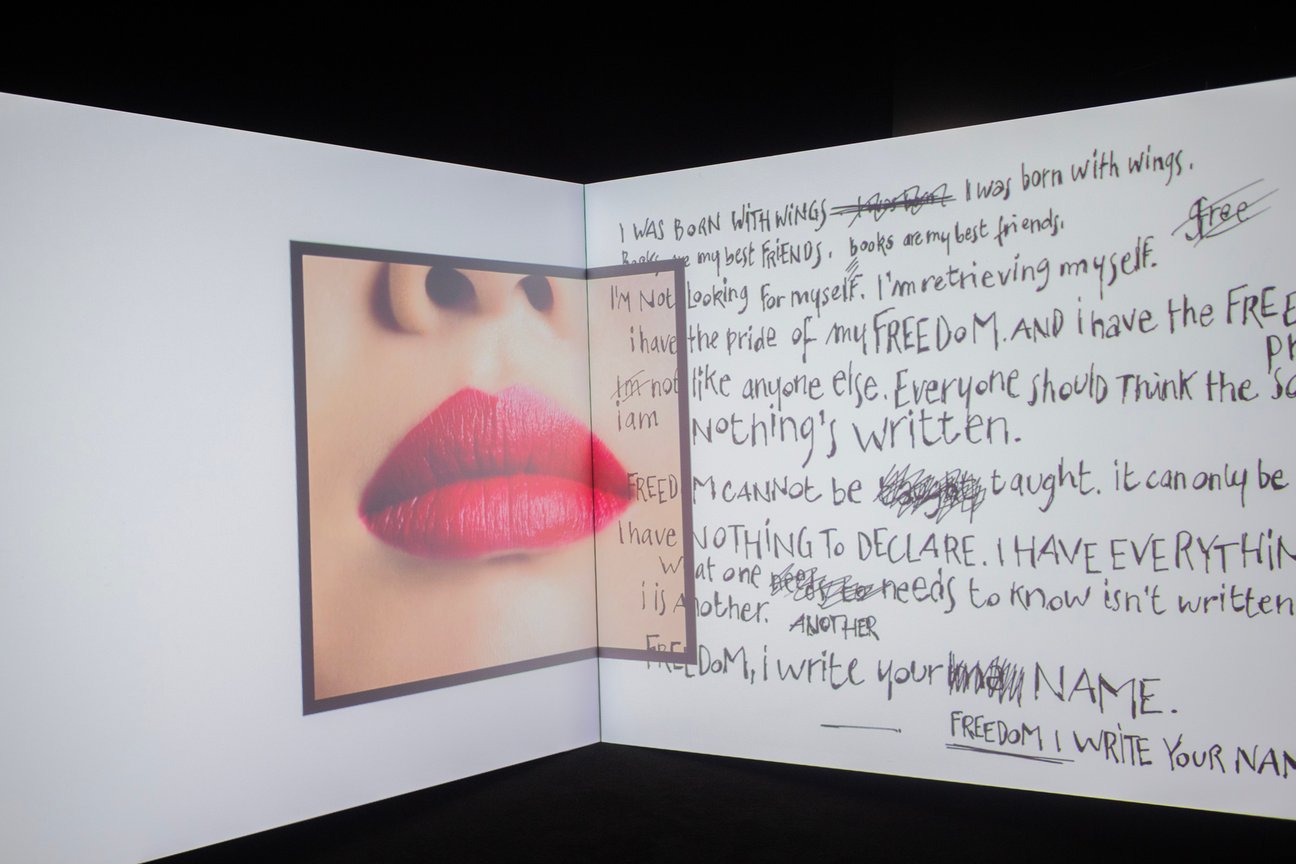 I WAS BORN WITH WINGS I was born with wings.
free
Books are my best FRiENDS. books are my best friends.
I'M Not Looking For myself. I'm retrieving myself.
i have the pride of my FREEDOM. AND i have the FREE
PR
I'm not like anyone else. Everyone should Think the Sa
iam Nothing's written.
FREEDOM CANNOt be taught. it can only be
I have NOTHiNG To DECLARE. I HAVE EVERYTHiN
What one needs to needs to know isn't written
i is Another.
ANOTHER
FREEDoM, i write your NAME.
FREEDoM I WRiTE YoUR NAM